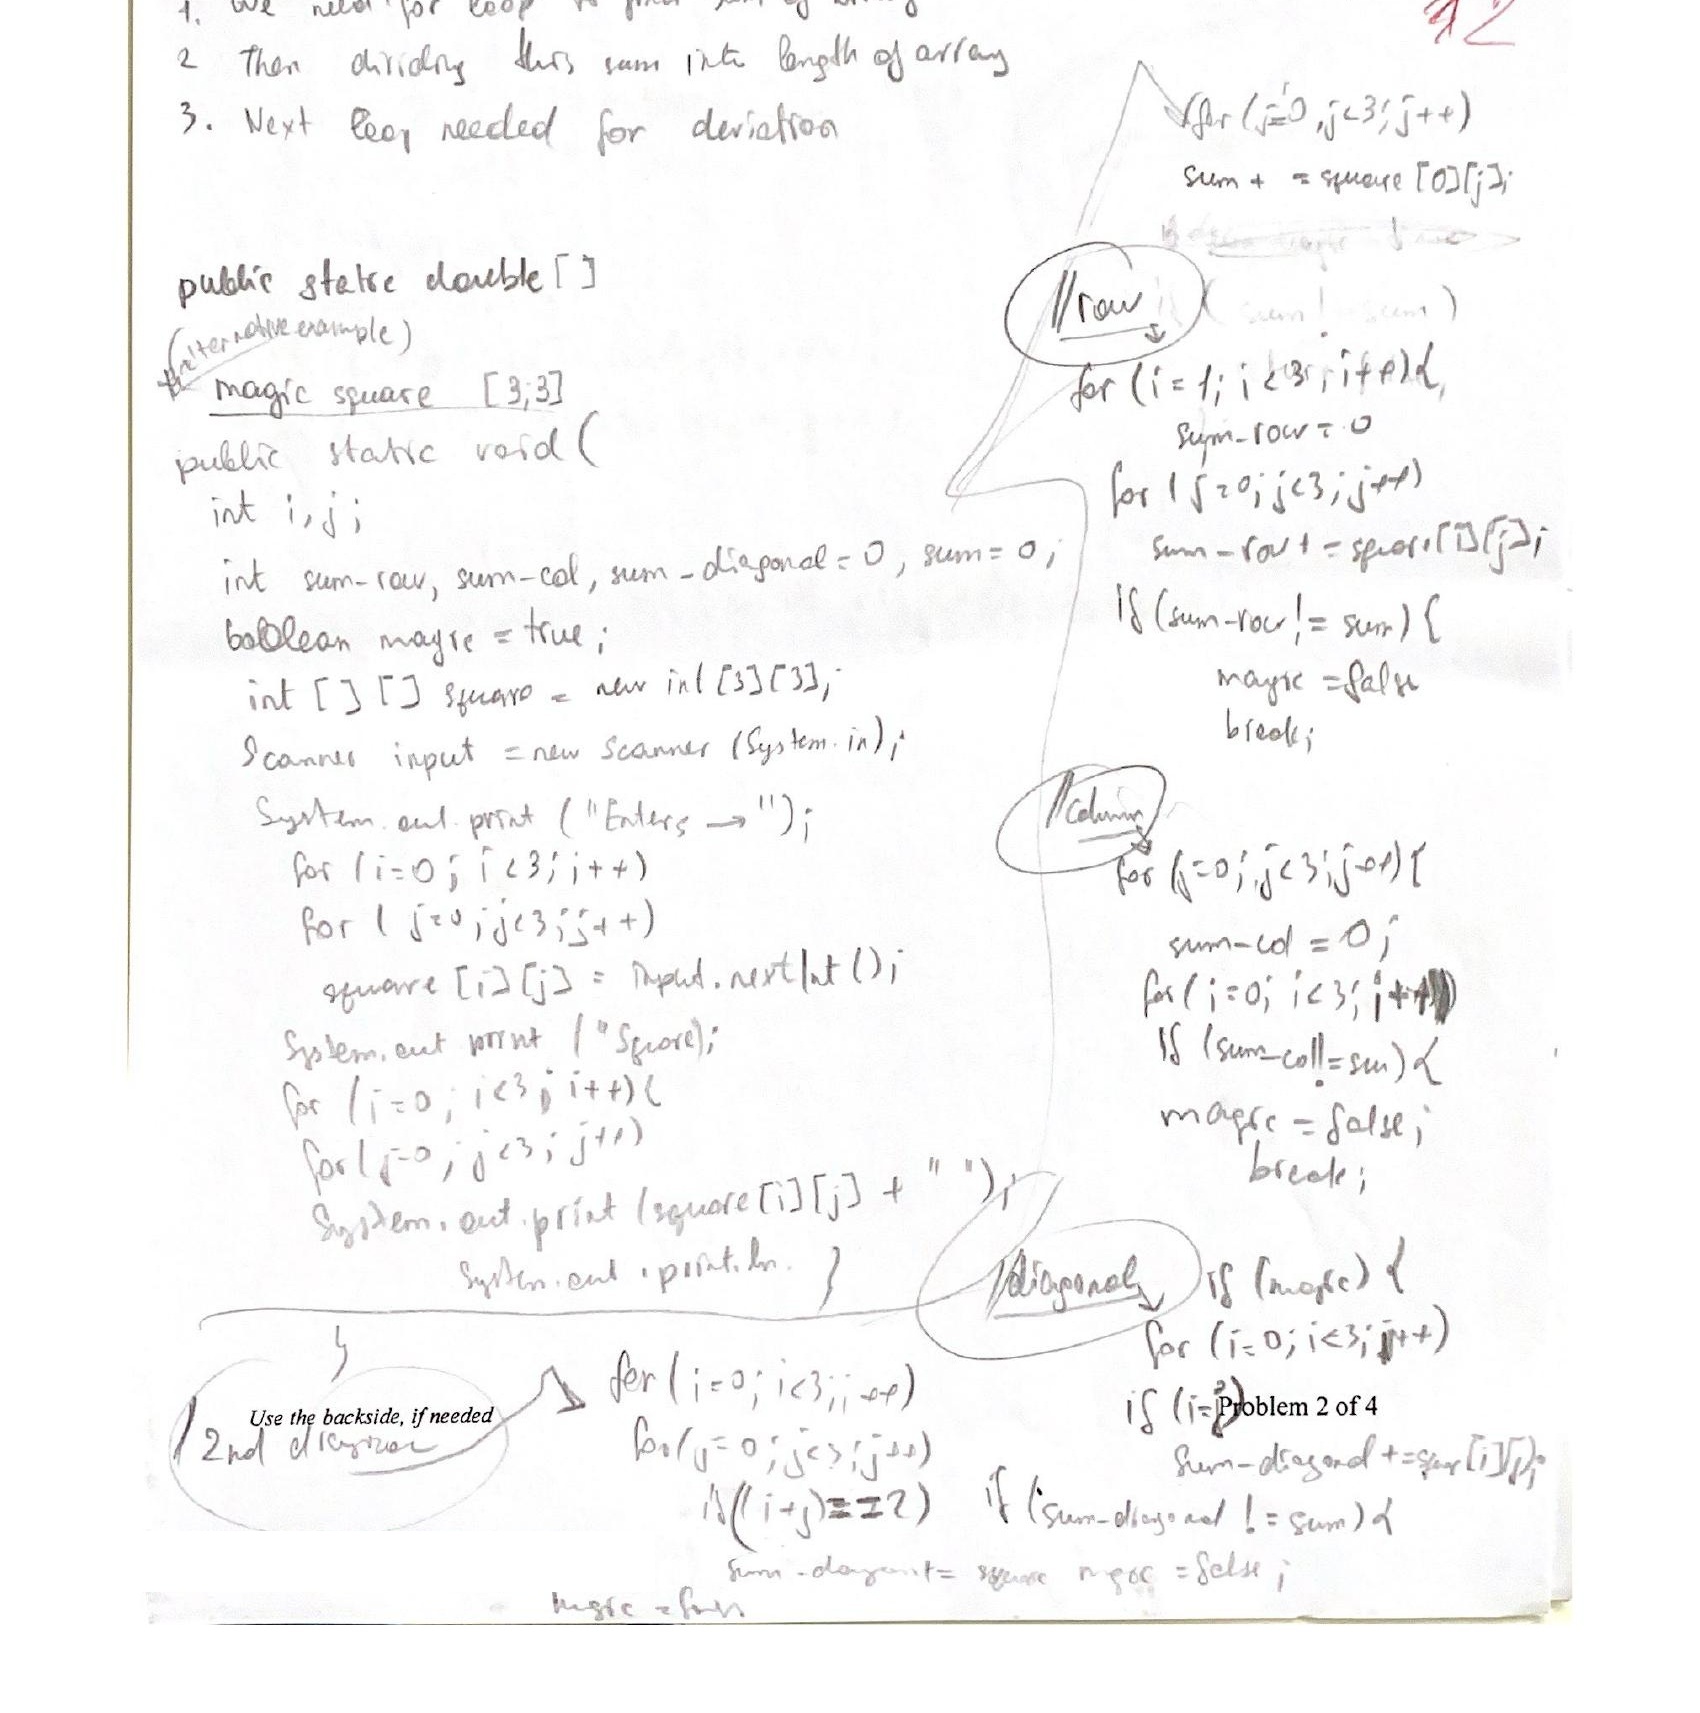 1. We need for loop to find sum of array
2 Then dividing this sum into length of array
3. Next loop needed for deviation
public static double []
(alternative example)
magic square [3;3]
public static void (
int i, j;
int sum-row, sum-col, sum-diagonal = 0, sum = 0;
boolean magic = true;
int [] [] square = new int [3][3];
Scanner input = new Scanner (System.in);
System.out.print ("Enters → ");
for (i=0; i<3; i++)
for ( j=0; j<3; j++)
square [i][j] = input.nextInt ();
System.out print ("Square);
for (i=0; i<3; i++) {
for (j=0; j<3; j++)
System.out.print (square[i][j] + " ");
System.out.println. }
12
for (j=0, j<3; j++)
sum + = square [0][j];
//row
for (i=1; i<3; i++){
sum-row = 0
for ( j=0; j<3; j++)
sum-row + = square[i][j];
if (sum-row != sum) {
magic = false
break;
//column
for (j=0; j<3; j++) {
sum-col = 0;
for (i=0; i<3; i++)
if (sum-col != sum) {
magic = false;
break;
//diagonal
if (magic) {
for (i=0; i<3; j++)
if (i=j)
sum-diagonal += [i][j];
if (sum-diagonal != sum) {
magic = false;
//2nd diagonal
for (i=0; i<3; i++)
for (j=0; j<3; j++)
if ((i+j)==2)
sum-diagonal+= square
magic = false
Use the backside, if needed
Problem 2 of 4